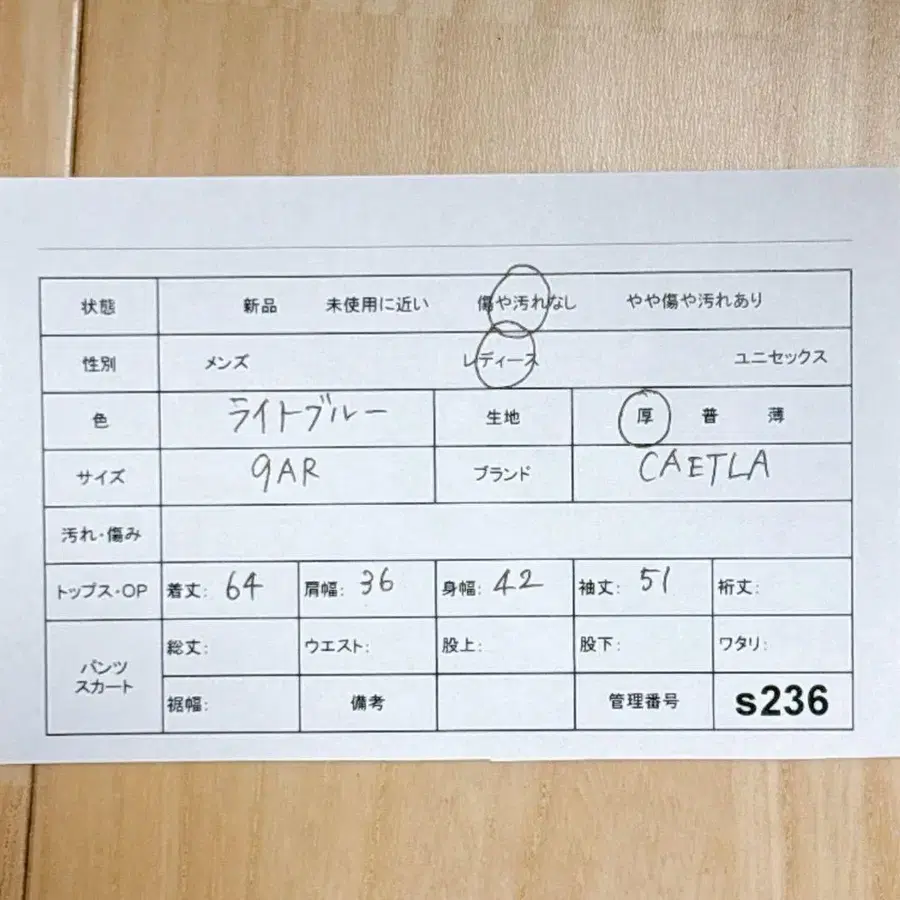 状態 新品 未使用に近い 傷や汚れなし やや傷や汚れあり
性別 メンズ レディース ユニセックス
色 ライトブルー 生地 厚 普 薄
サイズ 9AR ブランド CAETLA
汚れ・傷み
トップス・OP 着丈: 64 肩幅: 36 身幅: 42 袖丈: 51 裄丈:
パンツ
スカート
総丈: ウエスト: 股上: 股下: ワタリ:
裾幅: 備考 管理番号 s236